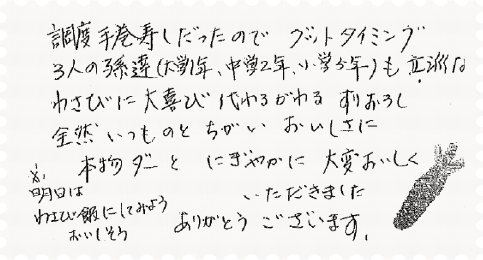 調度手巻寿しだったので グットタイミング
3人の孫達(大学1年、中学2年、小学5年)も立派な
わさびに大喜び代わるがわる すりおろし
全然いつものと ちがい おいしさに
本物ダーと にぎやかに 大変おいしく
いただきました
ありがとう ございます。
明日は
わさび飯にしてみよう
おいしそう